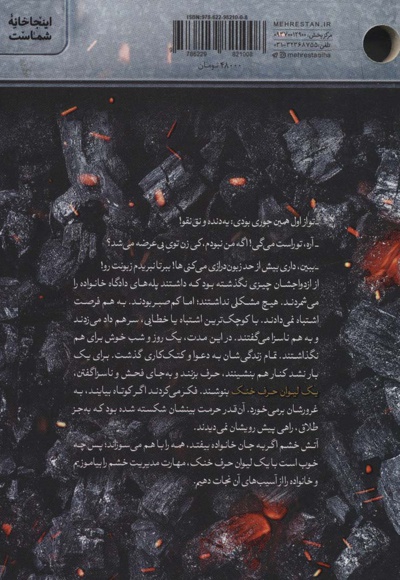 اینجا خانهٔ
شماست
MEHRESTAN.IR
مرکز پخش: ۰۹۳۷۰۰۱۲۹۰۰
mehrestana
۴۸۰۰۰ تومان
ـ تو از اول همین جوری بودی؛ یه‌دنده و نق‌نقو!
ـ آره، تو راست می‌گی! اگه من نبودم، کی زن توی بی‌عرضه می‌شد؟
ـ ببین، داری بیش از حد زبون‌درازی می‌کنی‌ها! ببر تا نبریدم زبونت رو!
از ازدواجشان چیزی نگذشته بود که داشتند پله‌های دادگاه خانواده را
می‌شمردند. هیچ مشکلی نداشتند؛ اما کم‌صبر بودند. به هم فرصت
اشتباه نمی‌دادند. با کوچک‌ترین اشتباه یا خطایی، سر هم داد می‌زدند
و به هم ناسزا می‌گفتند. در این مدت، یک روز و شب خوش برای هم
نگذاشتند. تمام زندگی‌شان به دعوا و کتک‌کاری گذشت. برای یک
بار نشد کنار هم بنشینند، حرف بزنند و به‌جای فحش و ناسزا گفتن،
یک لیوان حرف خنک بنوشند. فکر می‌کردند اگر کوتاه بیایند، به
غرورشان برمی‌خورد. آن‌قدر حرمت بینشان شکسته شده بود که به‌جز
طلاق، راهی پیش رویشان نمی‌دیدند.
آتش خشم اگر به جان خانواده بیفتد، همه را با هم می‌سوزاند؛ پس چه
خوب است با یک لیوان حرف خنک، مهارت مدیریت خشم را بیاموزیم
و خانواده را از آسیب‌های آن نجات دهیم.